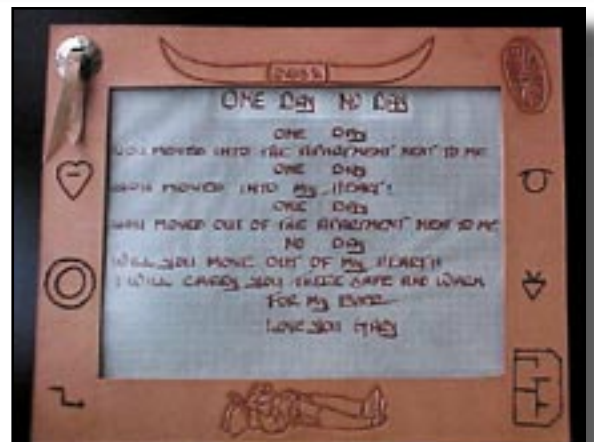 ONE DAY NO DAY
ONE DAY
YOU MOVED INTO THE APARTMENT NEXT TO ME
ONE DAY
YOU MOVED INTO MY HEART!
ONE DAY
YOU MOVED OUT OF THE APARTMENT NEXT TO ME
NO DAY
WILL YOU MOVE OUT OF MY HEART!!
I WILL CARRY YOU THERE SAFE AND WARM
FOR MY EVER
LOVE YOU